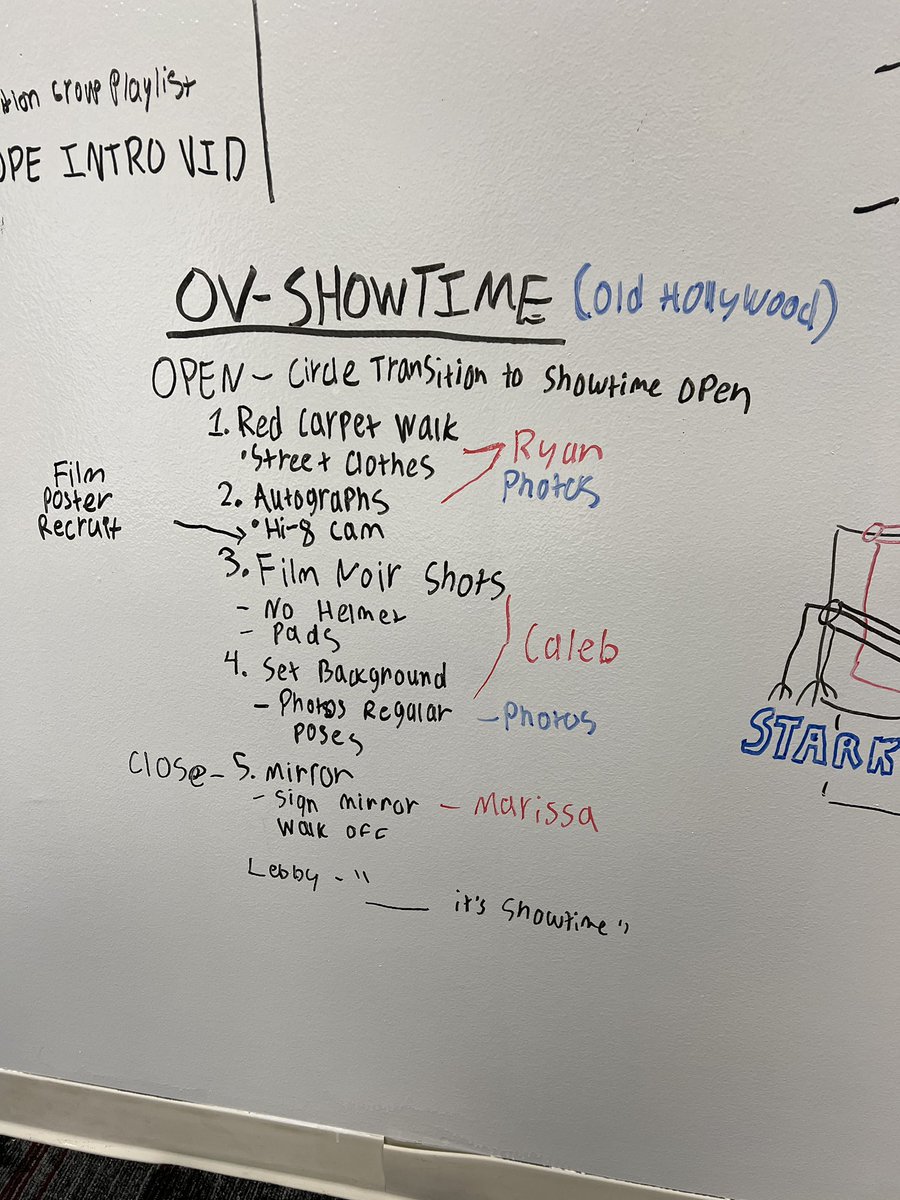 Group Playlist
INTRO VID
OV-SHOWTIME (Old Hollywood)
OPEN - Circle Transition to Showtime Open
1. Red Carpet Walk
•Street Clothes
Ryan
Photos
2. Autographs
•Hi-8 Cam
Film
Poster
Recruit
3. Film Noir Shots
- No Helmet
- Pads
Caleb
4. Set Background
- Photos Regular
Poses
- Photos
Close - 5. Mirror
- Sign mirror
Walk off
- Marissa
Lebby - "
___ it's Showtime"
STARK